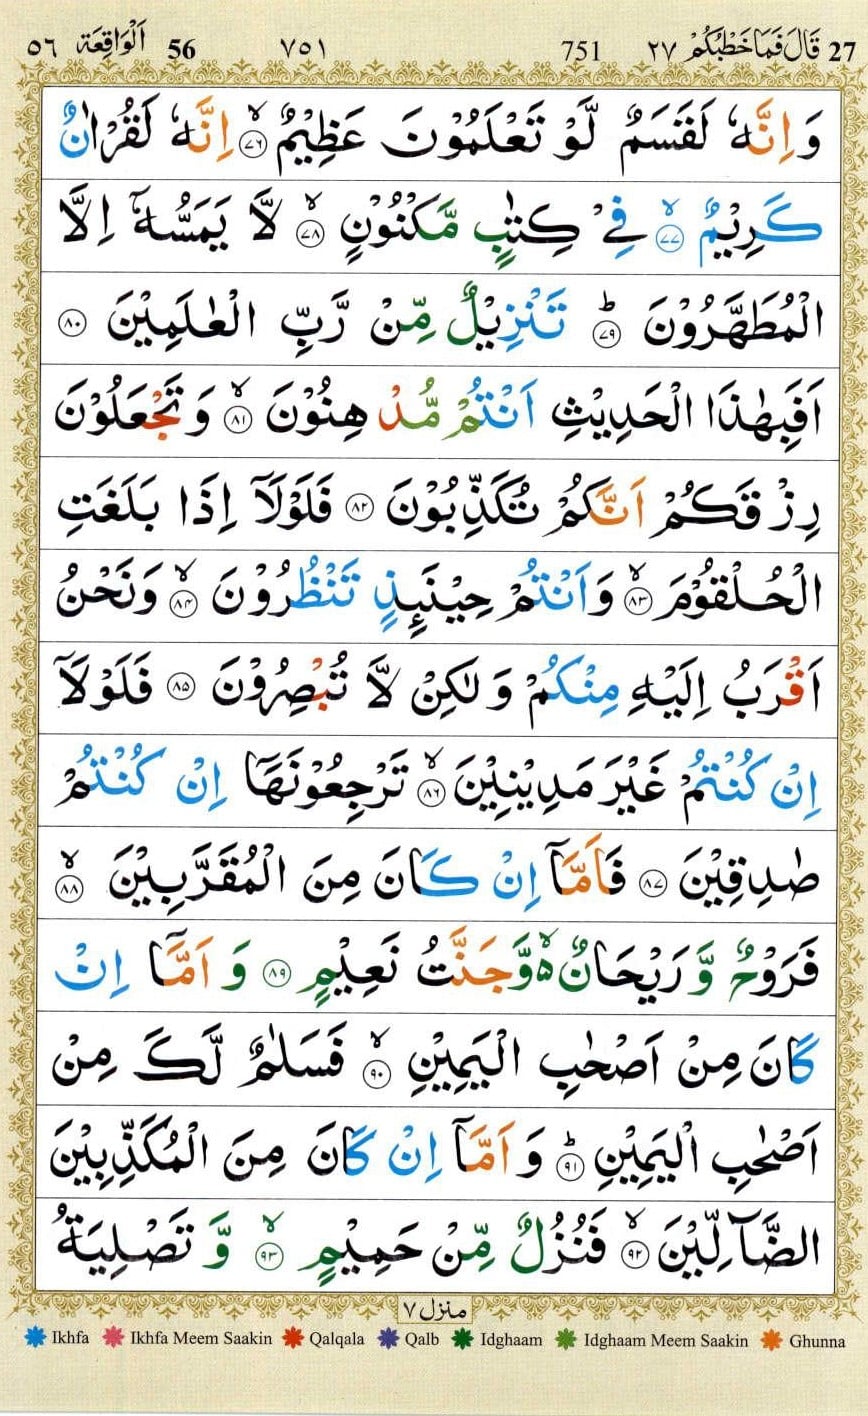 27 قَالَ فَمَا خَطْبُكُمْ ٢٧ 751 ٧٥١ 56 اَلْوَاقِعَة ٥٦
وَاِنَّهٗ لَقَسَمٌ لَّوْ تَعْلَمُوْنَ عَظِيْمٌ ۙ﴿٧٦﴾ اِنَّهٗ لَقُرْاٰنٌ
كَرِيْمٌ ۙ﴿٧٧﴾ فِيْ كِتٰبٍ مَّكْنُوْنٍ ۙ﴿٧٨﴾ لَّا يَمَسُّهٗٓ اِلَّا
الْمُطَهَّرُوْنَ ؕ﴿٧٩﴾ تَنْزِيْلٌ مِّنْ رَّبِّ الْعٰلَمِيْنَ ﴿٨٠﴾
اَفَبِهٰذَا الْحَدِيْثِ اَنْتُمْ مُّدْهِنُوْنَ ۙ﴿٨١﴾ وَتَجْعَلُوْنَ
رِزْقَكُمْ اَنَّكُمْ تُكَذِّبُوْنَ ﴿٨٢﴾ فَلَوْلَاۤ اِذَا بَلَغَتِ
الْحُلْقُوْمَ ۙ﴿٨٣﴾ وَاَنْتُمْ حِيْنَىِٕذٍ تَنْظُرُوْنَ ۙ﴿٨٤﴾ وَنَحْنُ
اَقْرَبُ اِلَيْهِ مِنْكُمْ وَلٰكِنْ لَّا تُبْصِرُوْنَ ﴿٨٥﴾ فَلَوْلَاۤ
اِنْ كُنْتُمْ غَيْرَ مَدِيْنِيْنَ ۙ﴿٨٦﴾ تَرْجِعُوْنَهَاۤ اِنْ كُنْتُمْ
صٰدِقِيْنَ ﴿٨٧﴾ فَاَمَّاۤ اِنْ كَانَ مِنَ الْمُقَرَّبِيْنَ ۙ﴿٨٨﴾
فَرَوْحٌ وَّرَيْحَانٌ ۙ۬ وَّجَنَّتُ نَعِيْمٍ ﴿٨٩﴾ وَاَمَّاۤ اِنْ
كَانَ مِنْ اَصْحٰبِ الْيَمِيْنِ ۙ﴿٩٠﴾ فَسَلٰمٌ لَّكَ مِنْ
اَصْحٰبِ الْيَمِيْنِ ؕ﴿٩١﴾ وَاَمَّاۤ اِنْ كَانَ مِنَ الْمُكَذِّبِيْنَ
الضَّآلِّيْنَ ۙ﴿٩٢﴾ فَنُزُلٌ مِّنْ حَمِيْمٍ ۙ﴿٩٣﴾ وَّتَصْلِيَةُ
منزل ٧
Ikhfa Ikhfa Meem Saakin Qalqala Qalb Idghaam Idghaam Meem Saakin Ghunna